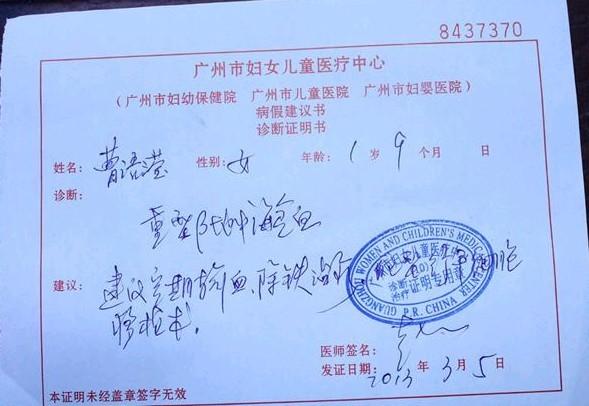 8437370
广州市妇女儿童医疗中心
(广州市妇幼保健院 广州市儿童医院 广州市妇婴医院)
病假建议书
诊断证明书
姓名: 曹语滢 性别: 女 年龄: 1 岁 9 个月 日
诊断:
重型β地中海贫血
建议: 建议定期输血、除铁治疗 细胞
移植术.
GUANGZHOU WOMEN AND CHILDREN'S MEDICAL CENTER
诊断
治疗 证明专用章
P.R. CHINA
医师签名:
发证日期: 2013 年 3 月 5 日
本证明未经盖章签字无效